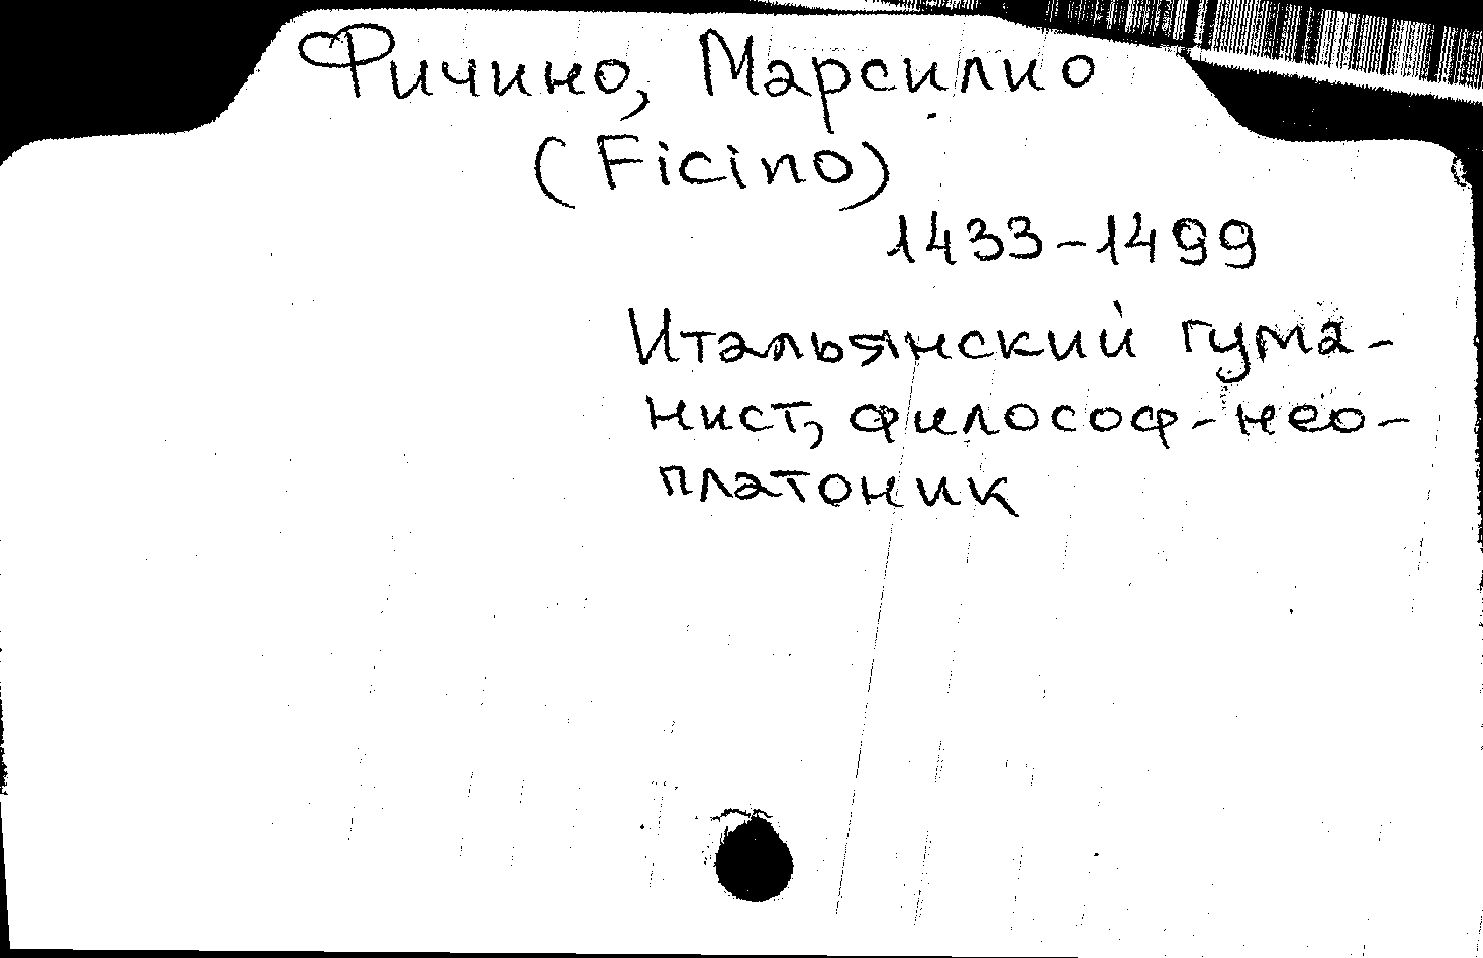 Фичино, Марсилио
(Ficino)
1433-1499
Итальянский гума-
нист, философ-нео-
платоник